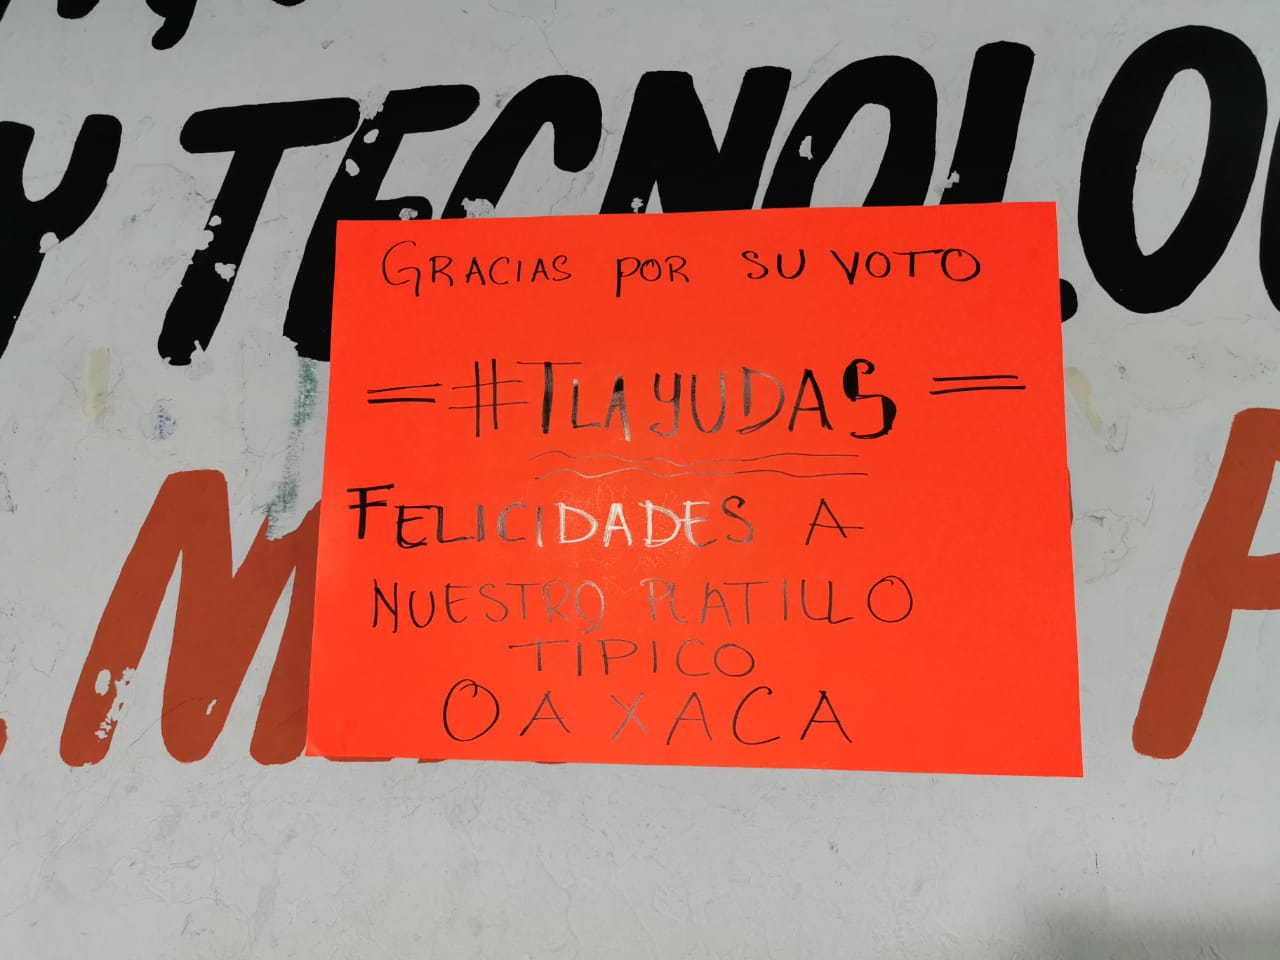 Y TECNOLO
GRACIAS POR SU VOTO
= #TLAYUDAS =
FELICIDADES A
NUESTRO PLATILLO
TÍPICO
OAXACA